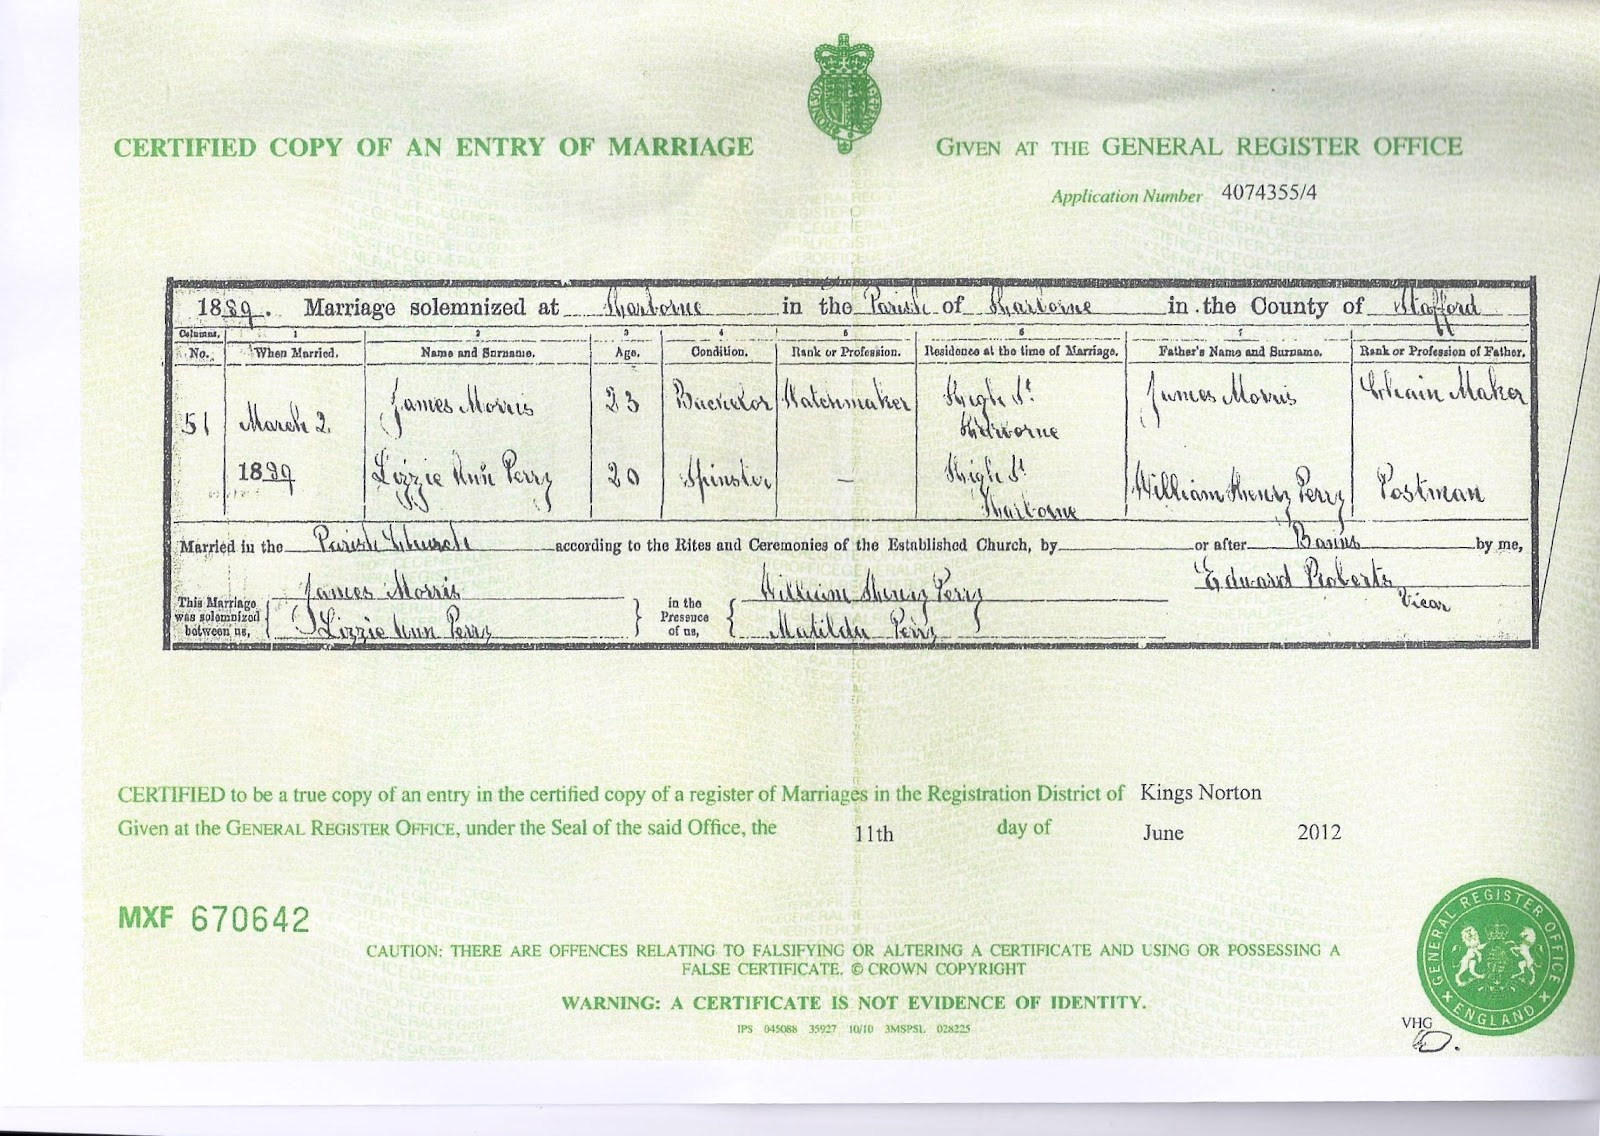 CERTIFIED COPY OF AN ENTRY OF MARRIAGE
GIVEN AT THE GENERAL REGISTER OFFICE
Application Number 4074355/4
1889. Marriage solemnized at Harborne in the Parish of Harborne in the County of Stafford
Columns. 1 2 3 4 5 6 7 8
No. When Married. Name and Surname. Age. Condition. Rank or Profession. Residence at the time of Marriage. Father's Name and Surname. Rank or Profession of Father.
51 March 2 James Morris 23 Bachelor Watchmaker High St Harborne James Morris Chain Maker
1889 Lizzie Ann Perry 20 Spinster — High St Harborne William Henry Perry Postman
Married in the Parish Church according to the Rites and Ceremonies of the Established Church, by or after Banns by me,
This Marriage was solemnized between us, James Morris Lizzie Ann Perry in the Presence of us, William Henry Perry Matilda Perry Edward Roberts Vicar
CERTIFIED to be a true copy of an entry in the certified copy of a register of Marriages in the Registration District of Kings Norton
Given at the GENERAL REGISTER OFFICE, under the Seal of the said Office, the 11th day of June 2012
MXF 670642
CAUTION: THERE ARE OFFENCES RELATING TO FALSIFYING OR ALTERING A CERTIFICATE AND USING OR POSSESSING A
FALSE CERTIFICATE. © CROWN COPYRIGHT
WARNING: A CERTIFICATE IS NOT EVIDENCE OF IDENTITY.
IPS 045088 35927 10/10 3MSPSL 028225
GENERAL REGISTER OFFICE
ENGLAND
VHG